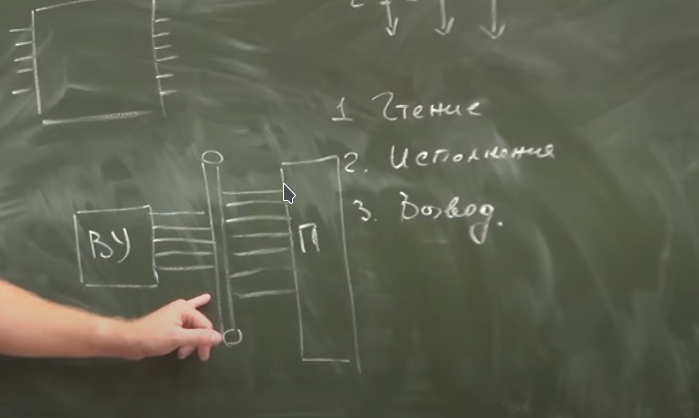 1 Чтение
2. Исполнения
3. Возвод.
ВУ
П